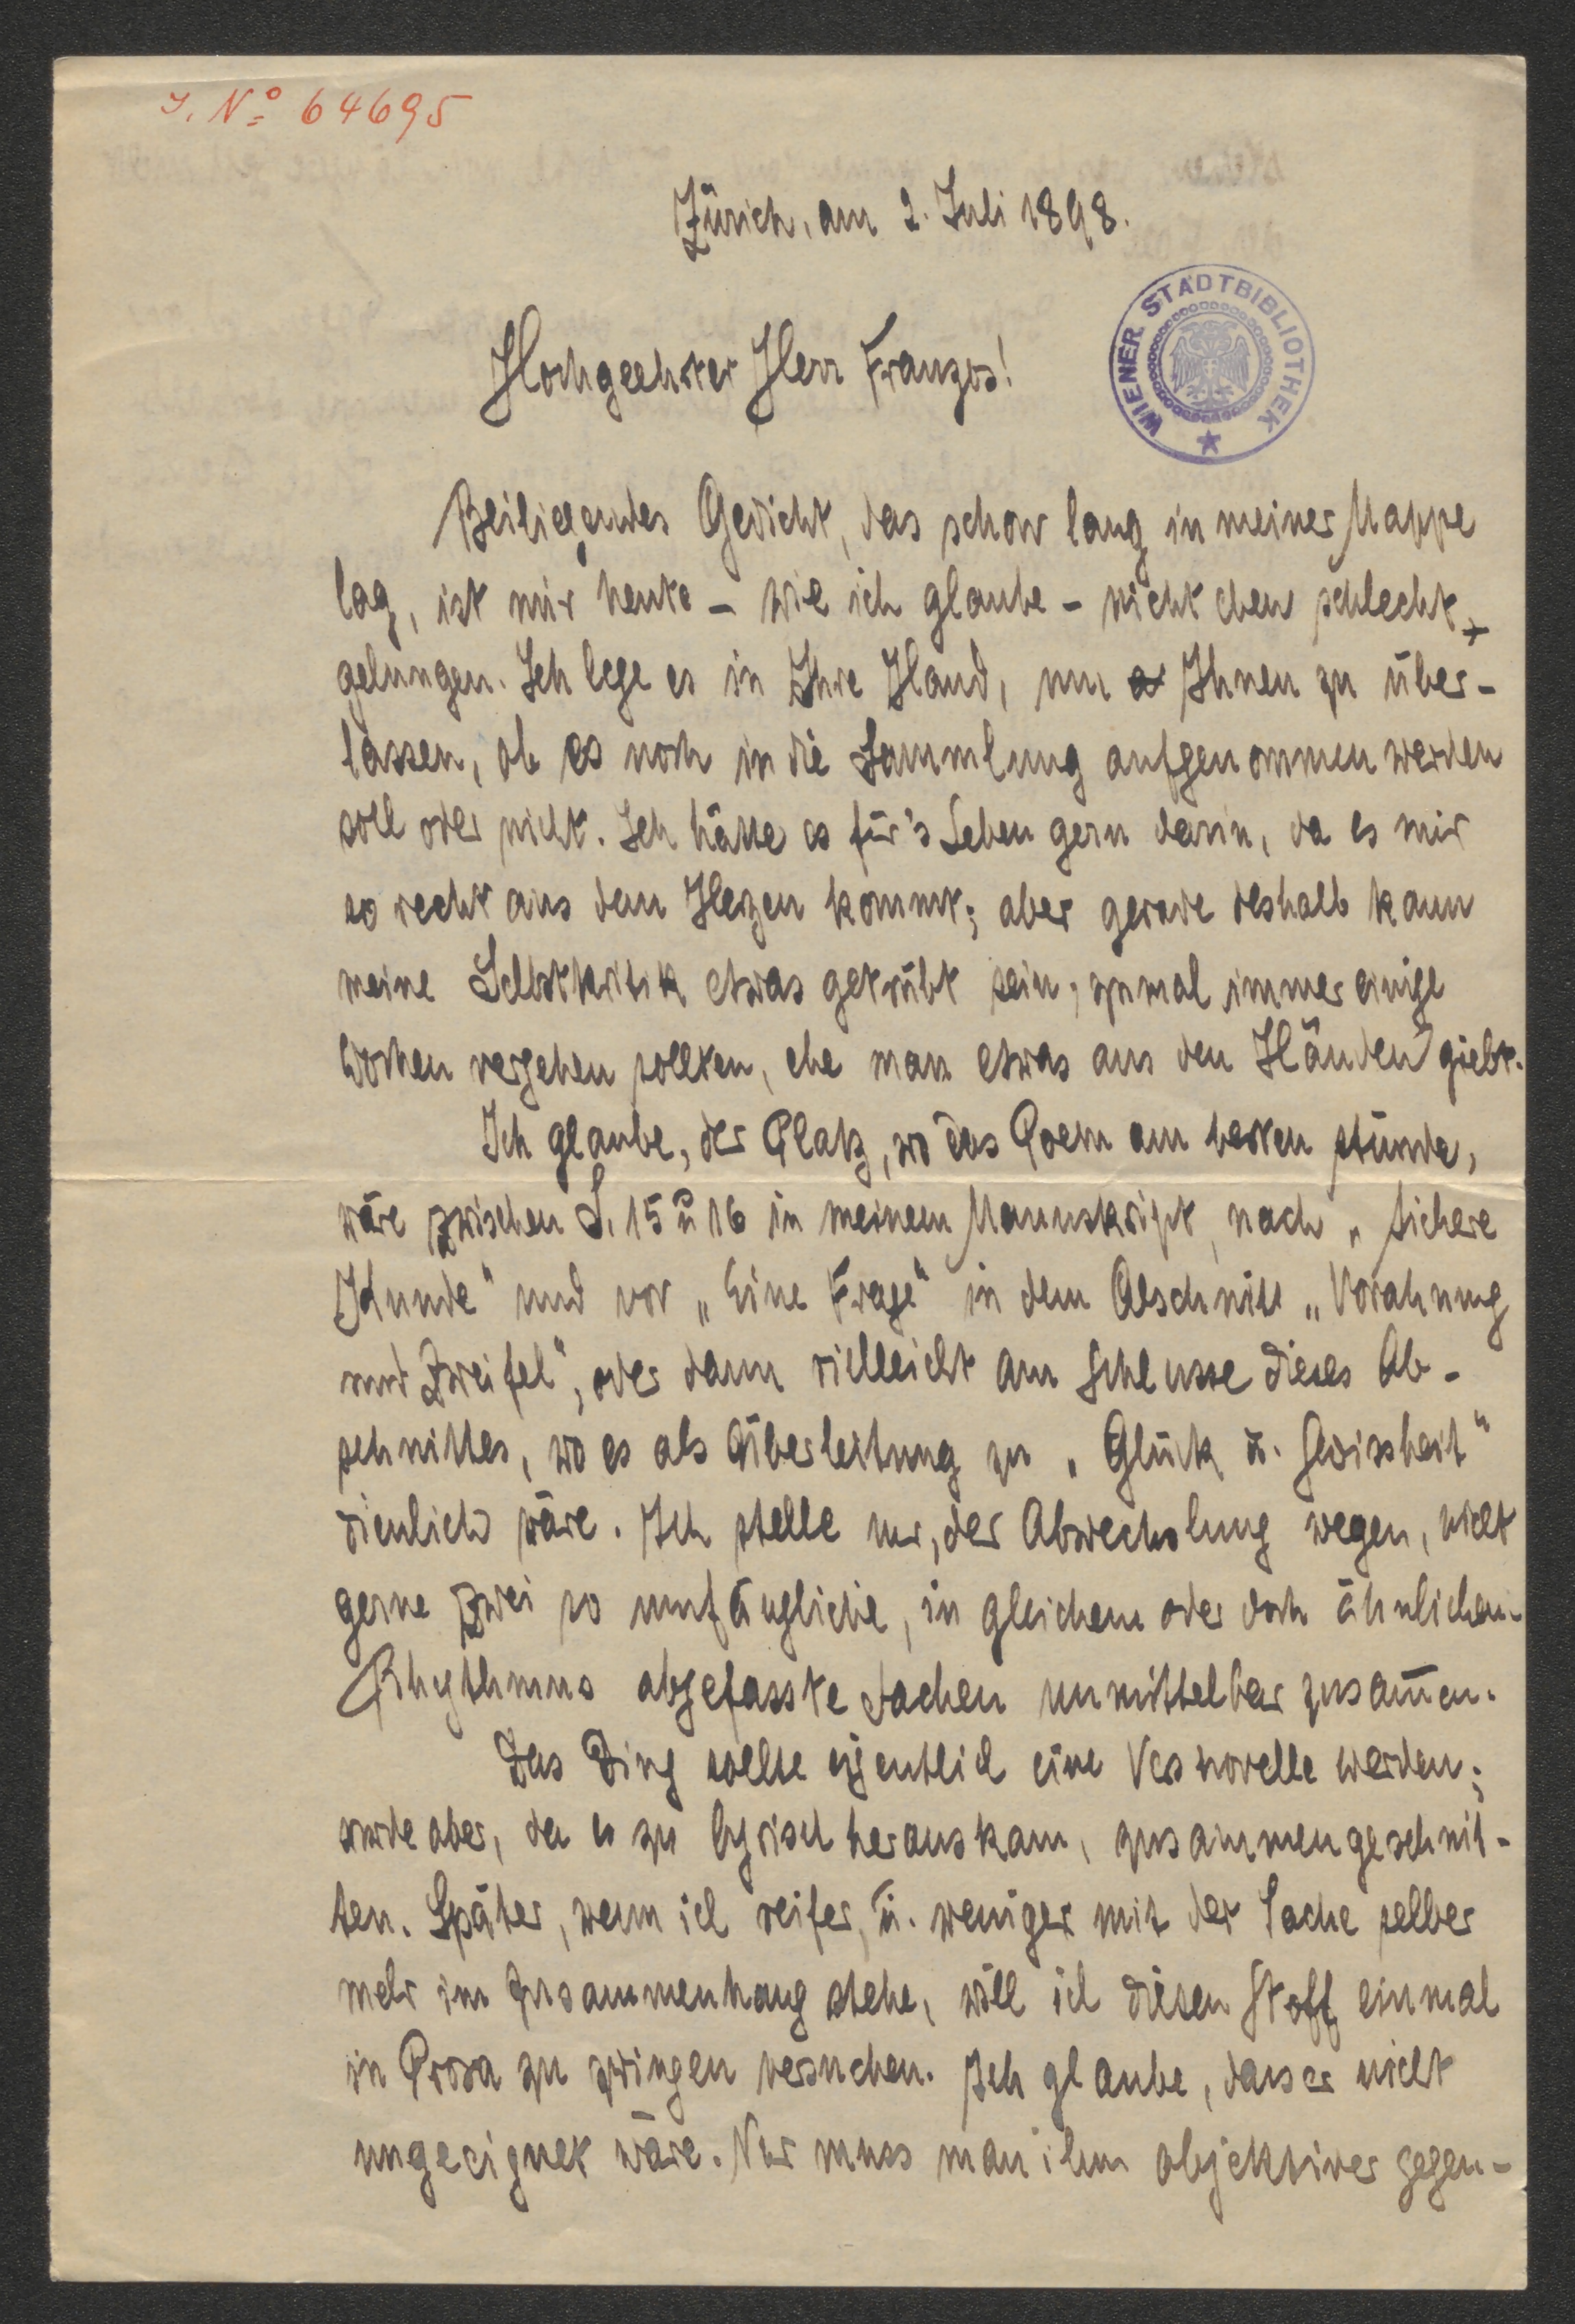 J. No 64695
Zürich, am 2. Juli 1898.
WIENER STADTBIBLIOTHEK
Hochgeehrter Herr Franzos!
Beiliegendes Gedicht, das schon lang in meiner Mappe
lag, ist mir heute – wie ich glaube – nicht eben schlecht
gelungen. Ich lege es in Ihre Hand, um es Ihnen zu über-
lassen, ob es noch in die Sammlung aufgenommen werden
soll oder nicht. Ich hätte es für's Leben gern darin, da es mir
so recht aus dem Herzen kommt; aber gerade deshalb kann
meine Selbstkritik etwas getrübt sein, zumal immer einige
Wochen vergehen sollten, ehe man etwas aus den Händen giebt.
Ich glaube, der Platz, wo das Poem am besten stünde,
wäre zwischen S. 15 u 16 in meinem Manuskript, nach „Sichere
Kunde" und vor „Eine Frage" in dem Abschnitt „Vorahnung
und Zweifel", oder dann vielleicht am Schlusse dieses Ab-
schnittes, wo es als Überleitung zu „Glück u. Gewissheit"
dienlich wäre. Ich stelle nur, der Abwechslung wegen, nicht
gerne zwei so umfängliche, in gleichem oder doch ähnlichem
Rhythmus abgefasste Sachen unmittelbar zusam̅en.
Das Ding sollte eigentlich eine Versnovelle werden;
wurde aber, da es zu lyrisch herauskam, zusammengeschnit-
ten. Später, wenn ich reifer, u. weniger mit der Sache selber
mehr im Zusammenhang stehe, will ich diesen Stoff einmal
in Prosa zu zwingen versuchen. Ich glaube, dass er nicht
ungeeignet wäre. Nur muss man ihm objektiver gegen-